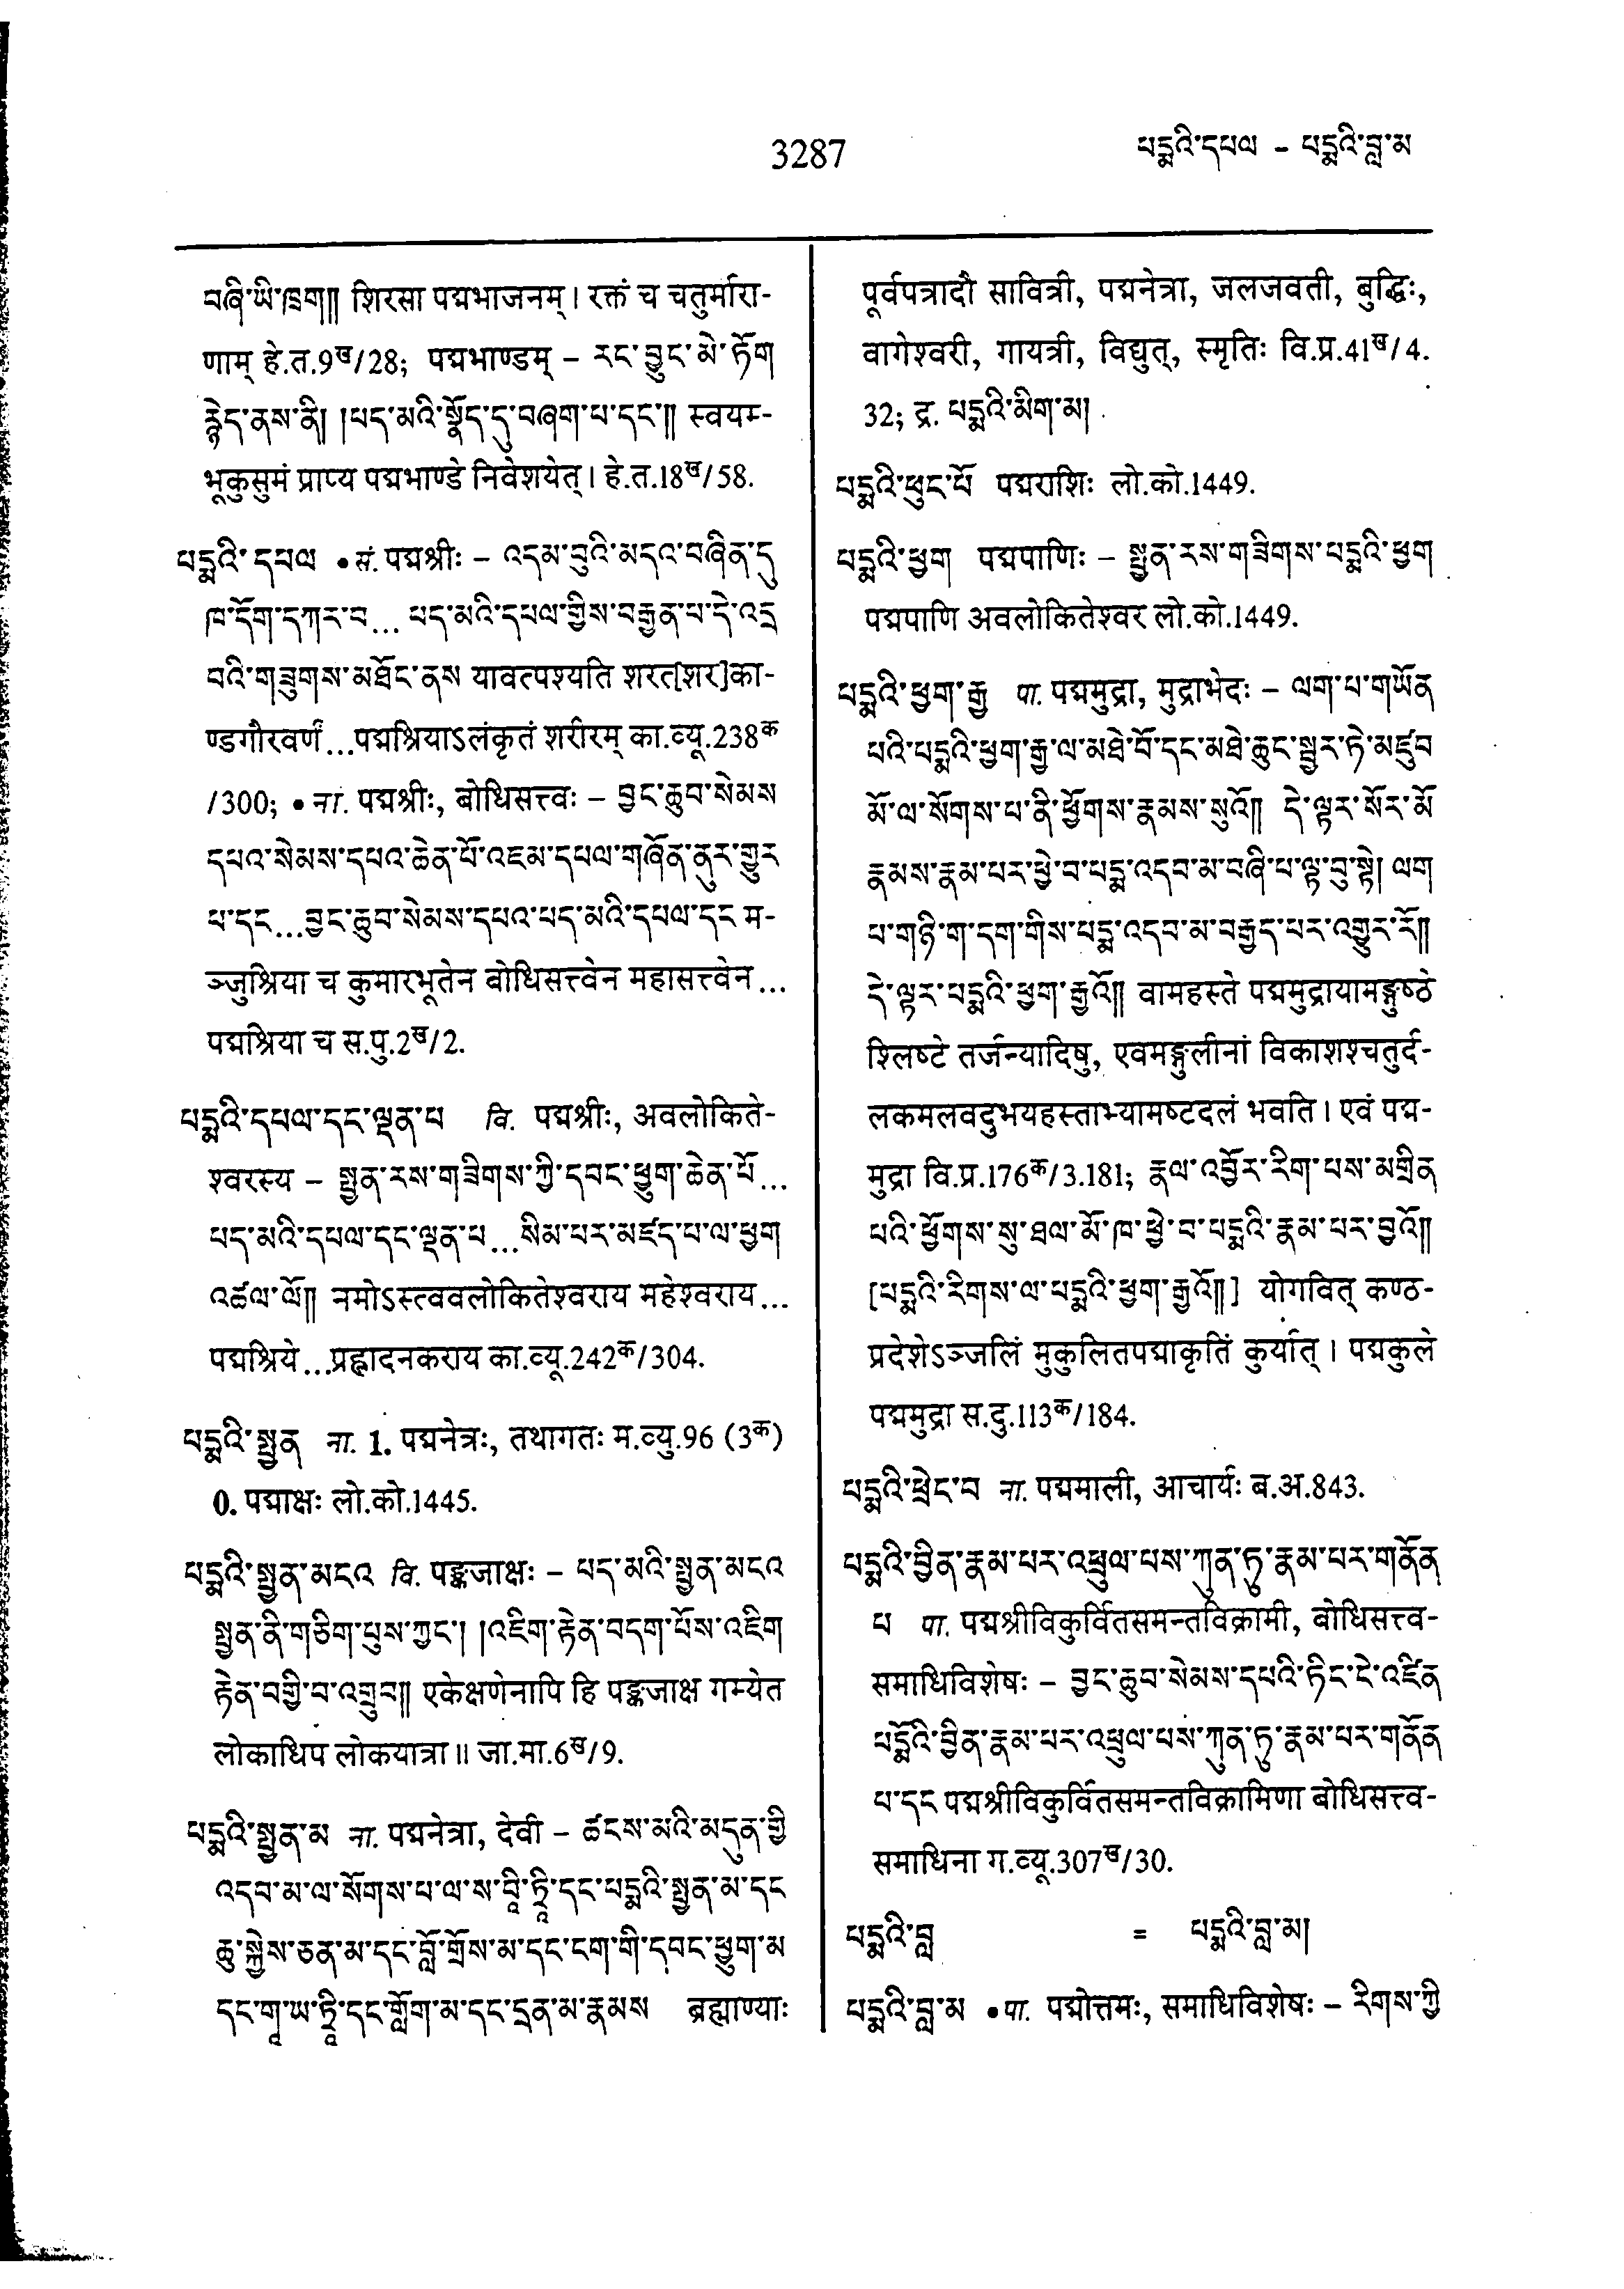 3287
པདྨའི་དཔལ – པདྨའི་བླ་མ
བཞི་ཡི་ཁྲག། शिरसा पद्मभाजनम् । रक्तं च चतुर्मारा-
णाम् हे.त.9ख/28; पद्मभाण्डम् – རང་བྱུང་མེ་ཏོག
རྙེད་ནས་ནི། །པད་མའི་སྣོད་དུ་བཞག་པ་དང་།། स्वयम-
भूकुसुमं प्राप्य पद्मभाण्डे निवेशयेत् । हे.त.18ख/58.
པདྨའི་དཔལ • सं. पद्मश्रीः – འདམ་བུའི་མདའ་བཞིན་དུ
ཁ་དོག་དཀར་བ... པད་མའི་དཔལ་གྱིས་བརྒྱན་པ་དེ་འདྲ
བའི་གཟུགས་མཐོང་ནས यावत्पश्यति शरत[शर]का-
ण्डगौरवर्णं...पद्मश्रियाऽलंकृतं शरीरम् का.व्यू.238क
/300; • ना. पद्मश्रीः, बोधिसत्त्वः – བྱང་ཆུབ་སེམས
དཔའ་སེམས་དཔའ་ཆེན་པོ་འཇམ་དཔལ་གཞོན་ནུར་གྱུར
པ་དང...བྱང་ཆུབ་སེམས་དཔའ་པད་མའི་དཔལ་དང म-
ञ्जुश्रिया च कुमारभूतेन बोधिसत्त्वेन महासत्त्वेन...
पद्मश्रिया च स.पु.2ख/2.
པདྨའི་དཔལ་དང་ལྡན་པ वि. पद्मश्रीः, अवलोकिते-
श्वरस्य – སྤྱན་རས་གཟིགས་ཀྱི་དབང་ཕྱུག་ཆེན་པོ...
པད་མའི་དཔལ་དང་ལྡན་པ...སིམ་པར་མཛད་པ་ལ་ཕྱག
འཚལ་ལོ།། नमोऽस्त्ववलोकितेश्वराय महेश्वराय...
पद्मश्रिये...प्रह्लादनकराय का.व्यू.242क/304.
པདྨའི་སྤྱན ना. 1. पद्मनेत्रः, तथागतः म.व्यु.96 (3क)
0. पद्माक्षः लो.को.1445.
པདྨའི་སྤྱན་མངའ वि. पङ्कजाक्षः – པད་མའི་སྤྱན་མངའ
སྤྱན་ནི་གཅིག་པུས་ཀྱང་། །འཇིག་རྟེན་བདག་པོས་འཇིག
རྟེན་བགྱི་བ་འགྲུབ།། एकेक्षणेनापि हि पङ्कजाक्ष गम्येत
लोकाधिप लोकयात्रा ॥ जा.मा.6ख/9.
པདྨའི་སྤྱན་མ ना. पद्मनेत्रा, देवी – ཚངས་མའི་མདུན་གྱི
འདབ་མ་ལ་སོགས་པ་ལ་ས་བཱི་ཏྲཱི་དང་པདྨའི་སྤྱན་མ་དང
ཆུ་སྐྱེས་ཅན་མ་དང་བློ་གྲོས་མ་དང་ངག་གི་དབང་ཕྱུག་མ
དང་གཱ་ཡ་ཏྲཱི་དང་གློག་མ་དང་དྲན་མ་རྣམས ब्रह्माण्याः
पूर्वपत्रादौ सावित्री, पद्मनेत्रा, जलजवती, बुद्धिः,
वागेश्वरी, गायत्री, विद्युत्, स्मृतिः वि.प्र.41ख/4.
32; द्र. པདྨའི་མིག་མ།
པདྨའི་ཕུང་པོ पद्मराशिः लो.को.1449.
པདྨའི་ཕྱག पद्मपाणिः – སྤྱན་རས་གཟིགས་པདྨའི་ཕྱག
पद्मपाणि अवलोकितेश्वर लो.को.1449.
པདྨའི་ཕྱག་རྒྱ पा. पद्ममुद्रा, मुद्राभेदः – ལག་པ་གཡོན
པའི་པདྨའི་ཕྱག་རྒྱ་ལ་མཐེ་བོ་དང་མཐེ་ཆུང་སྦྱར་ཏེ་མཛུབ
མོ་ལ་སོགས་པ་ནི་ཕྱོགས་རྣམས་སུའོ།། དེ་ལྟར་སོར་མོ
རྣམས་རྣམ་པར་ཕྱེ་བ་པདྨ་འདབ་མ་བཞི་པ་ལྟ་བུ་སྟེ། ལག
པ་གཉི་ག་དག་གིས་པདྨ་འདབ་མ་བརྒྱད་པར་འགྱུར་རོ།།
དེ་ལྟར་པདྨའི་ཕྱག་རྒྱའོ།། वामहस्ते पद्ममुद्रायामङ्गुष्ठे
श्लिष्टे तर्जन्यादिषु, एवमङ्गुलीनां विकाशश्चतुर्द-
लकमलवदुभयहस्ताभ्यामष्टदलं भवति । एवं पद्म-
मुद्रा वि.प्र.176क/3.181; རྣལ་འབྱོར་རིག་པས་མགྲིན
པའི་ཕྱོགས་སུ་ཐལ་མོ་ཁ་ཕྱེ་བ་པདྨའི་རྣམ་པར་བྱའོ།།
[པདྨའི་རིགས་ལ་པདྨའི་ཕྱག་རྒྱའོ།།] योगवित् कण्ठ-
प्रदेशेऽञ्जलिं मुकुलितपद्माकृतिं कुर्यात् । पद्मकुले
पद्ममुद्रा स.दु.113क/184.
པདྨའི་ཕྲེང་བ ना. पद्ममाली, आचार्यः ब.अ.843.
པདྨའི་བྱིན་རྣམ་པར་འཕྲུལ་པས་ཀུན་ཏུ་རྣམ་པར་གནོན
པ पा. पद्मश्रीविकुर्वितसमन्तविक्रामी, बोधिसत्त्व-
समाधिविशेषः – བྱང་ཆུབ་སེམས་དཔའི་ཏིང་ངེ་འཛིན
པདྨོའི་བྱིན་རྣམ་པར་འཕྲུལ་པས་ཀུན་ཏུ་རྣམ་པར་གནོན
པ་དང पद्मश्रीविकुर्वितसमन्तविक्रामिणा बोधिसत्त्व-
समाधिना ग.व्यू.307ख/30.
པདྨའི་བླ = པདྨའི་བླ་མ།
པདྨའི་བླ་མ • पा. पद्मोत्तमः, समाधिविशेषः – རིགས་ཀྱི